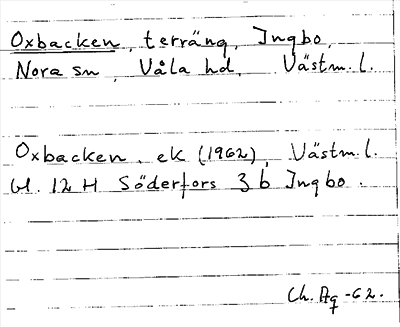 Oxbacken, terräng, Ingbo,
Nora sn, Våla hd, Västm. l.
Oxbacken. ek (1962), Västm. l.
bl. 12 H Söderfors 3 b Ingbo.
Ch. Ag -62.